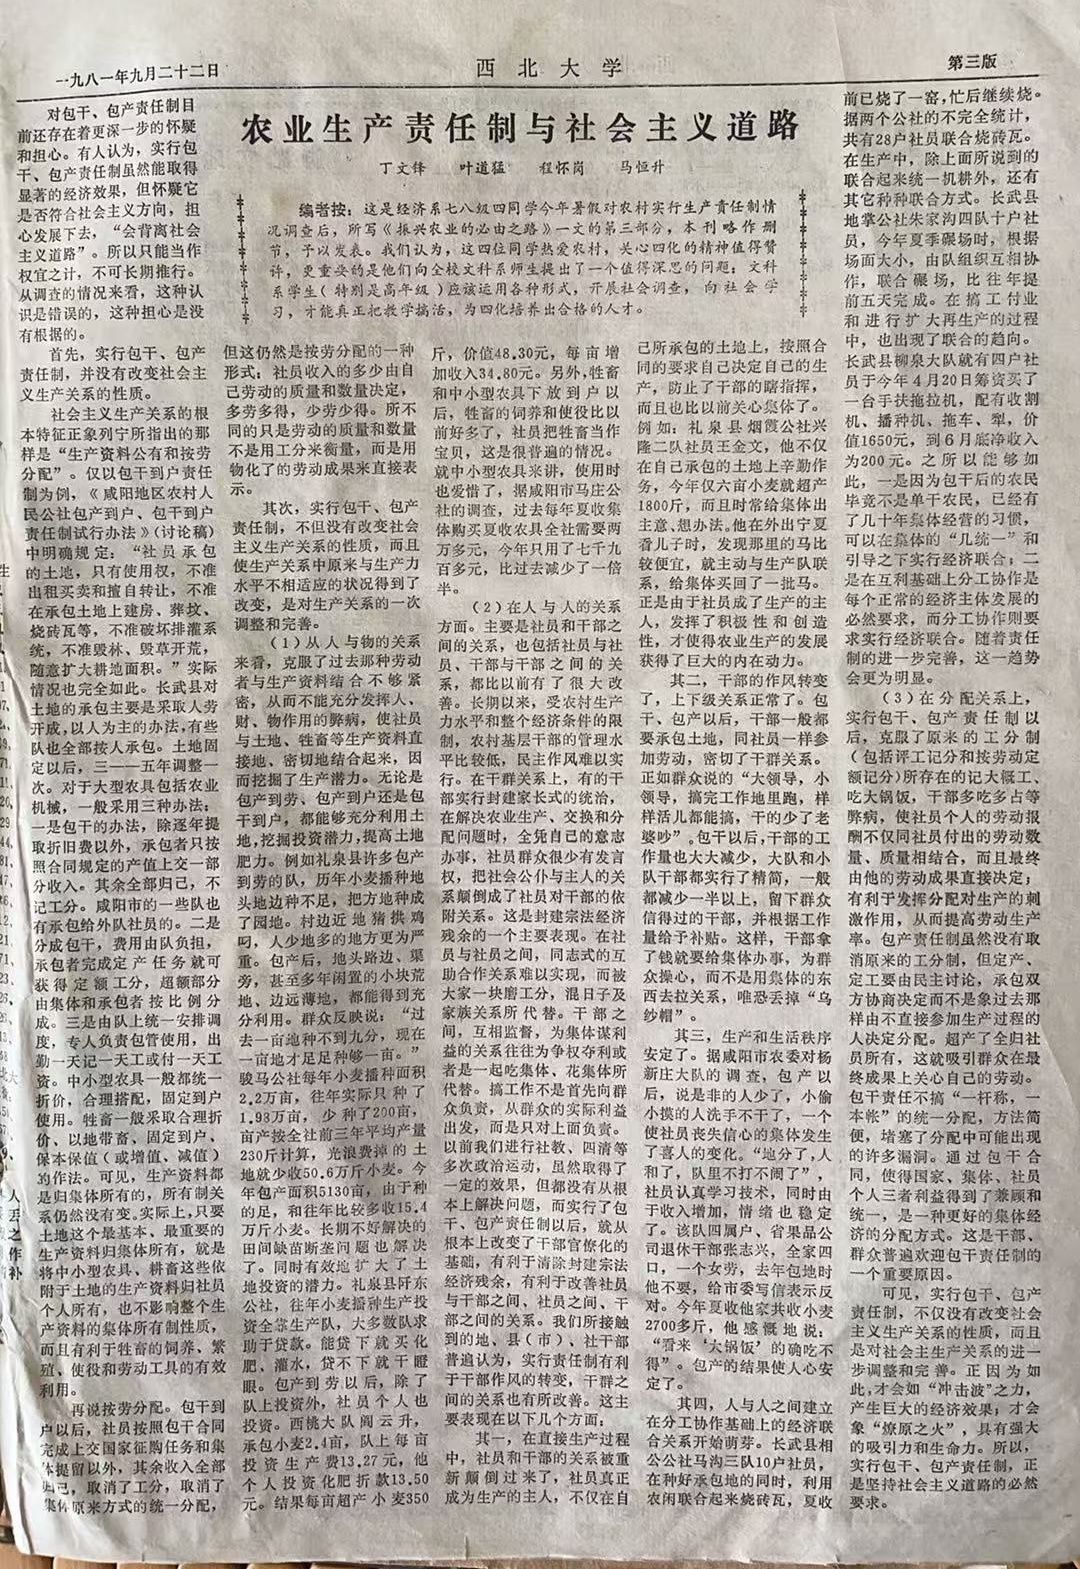 一九八一年九月二十二日
西北大学
第三版
农业生产责任制与社会主义道路
丁文锋 叶道猛 程怀岗 马恒升
编者按：这是经济系七八级四同学今年暑假对农村实行生产责任制情
况调查后，所写《振兴农业的必由之路》一文的第三部分，本刊略作删
节，予以发表。我们认为，这四位同学热爱农村，关心四化的精神值得赞
许，更重要的是他们向全校文科系师生提出了一个值得深思的问题：文科
系学生（特别是高年级）应该运用各种形式，开展社会调查，向社会学
习，才能真正把教学搞活，为四化培养出合格的人才。
对包干、包产责任制目
前还存在着更深一步的怀疑
和担心。有人认为，实行包
干、包产责任制虽然能取得
显著的经济效果，但怀疑它
是否符合社会主义方向，担
心发展下去，“会背离社会
主义道路”。所以只能当作
权宜之计，不可长期推行。
从调查的情况来看，这种认
识是错误的，这种担心是没
有根据的。
首先，实行包干、包产
责任制，并没有改变社会主
义生产关系的性质。
社会主义生产关系的根
本特征正象列宁所指出的那
样是“生产资料公有和按劳
分配”。仅以包干到户责任
制为例，《咸阳地区农村人
民公社包产到户、包干到户
责任制试行办法》（讨论稿）
中明确规定：“社员承包
的土地，只有使用权，不准
出租买卖和擅自转让，不准
在承包土地上建房、葬坟、
烧砖瓦等，不准破坏排灌系
统，不准毁林、毁草开荒，
随意扩大耕地面积。”实际
情况也完全如此。长武县对
土地的承包主要是采取人劳
开成，以人为主的办法，有些
队也全部按人承包。土地固
定以后，三——五年调整一
次。对于大型农具包括农业
机械，一般采用三种办法：
一是包干的办法，除逐年提
取折旧费以外，承包者只按
照合同规定的产值上交一部
分收入。其余全部归己，不
记工分。咸阳市的一些队也
有承包给外队社员的。二是
分成包干，费用由队负担，
承包者完成定产任务就可
获得定额工分，超额部分
由集体和承包者按比例分
成。三是由队上统一安排调
度，专人负责包管使用，出
勤一天记一天工或付一天工
资。中小型农具一般都统一
折价，合理搭配，固定到户
使用。牲畜一般采取合理折
价、以地带畜、固定到户、
保本保值（或增值、减值）
的作法。可见，生产资料都
是归集体所有的，所有制关
系仍然没有变。实际上，只要
土地这个最基本、最重要的
生产资料归集体所有，就是
将中小型农具、耕畜这些依
附于土地的生产资料归社员
个人所有，也不影响整个生
产资料的集体所有制性质，
而且有利于牲畜的饲养、繁
殖、使役和劳动工具的有效
利用。
再说按劳分配。包干到
户以后，社员按照包干合同
完成上交国家征购任务和集
体提留以外，其余收入全部
归己，取消了工分，取消了
集体原来方式的统一分配，
但这仍然是按劳分配的一种
形式：社员收入的多少由自
己劳动的质量和数量决定，
多劳多得，少劳少得。所不
同的只是劳动的质量和数量
不是用工分来衡量，而是用
物化了的劳动成果来直接表
示。
其次，实行包干、包产
责任制，不但没有改变社会
主义生产关系的性质，而且
使生产关系中原来与生产力
水平不相适应的状况得到了
改变，是对生产关系的一次
调整和完善。
（1）从人与物的关系
来看，克服了过去那种劳动
者与生产资料结合不够紧
密，从而不能充分发挥人、
财、物作用的弊病，使社员
与土地、牲畜等生产资料直
接地、密切地结合起来，因
而挖掘了生产潜力。无论是
包产到劳、包产到户还是包
干到户，都能够充分利用土
地，挖掘投资潜力，提高土地
肥力。例如礼泉县许多包产
到劳的队，历年小麦播种地
头地边种不足，把方地种成
了园地。村边近地猪拱鸡
叼，人少地多的地方更为严
重。包产后，地头路边、渠
旁，甚至多年闲置的小块荒
地、边远薄地，都能得到充
分利用。群众反映说：“过
去一亩地种不到九分，现在
一亩地才足足种够一亩。”
骏马公社每年小麦播种面积
2.2万亩，往年实际只种了
1.98万亩，少种了200亩，
亩产按全社前三年平均产量
230斤计算，光浪费掉的土
地就少收50.6万斤小麦。今
年包产面积5130亩，由于种
的足，和往年比较多收15.4
万斤小麦。长期不好解决的
田间缺苗断垄问题也解决
了。同时有效地扩大了土
地投资的潜力。礼泉县阡东
公社，往年小麦播种生产投
资全靠生产队，大多数队求
助于贷款。能贷下就买化
肥、灌水，贷不下就干瞪
眼。包产到劳以后，除了
队上投资外，社员个人也
投资。西桃大队阎云升，
承包小麦2.4亩，队上每亩
投资生产费13.27元，他
个人投资化肥折款13.50
元。结果每亩超产小麦350
斤，价值48.30元，每亩增
加收入34.80元。另外，牲畜
和中小型农具下放到户以
后，牲畜的饲养和使役比以
前好多了，社员把牲畜当作
宝贝，这是很普遍的情况。
就中小型农具来讲，使用时
也爱惜了，据咸阳市马庄公
社的调查，过去每年夏收集
体购买夏收农具全社需要两
万多元，今年只用了七千九
百多元，比过去减少了一倍
半。
（2）在人与人的关系
方面。主要是社员和干部之
间的关系，也包括社员与社
员、干部与干部之间的关
系，都比以前有了很大改
善。长期以来，受农村生产
力水平和整个经济条件的限
制，农村基层干部的管理水
平比较低，民主作风难以实
行。在干群关系上，有的干
部实行封建家长式的统治，
在解决农业生产、交换和分
配问题时，全凭自己的意志
办事，社员群众很少有发言
权，把社会公仆与主人的关
系颠倒成了社员对干部的依
附关系。这是封建宗法经济
残余的一个主要表现。在社
员与社员之间，同志式的互
助合作关系难以实现，而被
大家一块磨工分，混日子及
家族关系所代替。干部之
间，互相监督，为集体谋利
益的关系往往为争权夺利或
者是一起吃集体、花集体所
代替。搞工作不是首先向群
众负责，从群众的实际利益
出发，而是只对上面负责。
以前我们进行社教、四清等
多次政治运动，虽然取得了
一定的效果，但都没有从根
本上解决问题，而实行了包
干、包产责任制以后，就从
根本上改变了干部官僚化的
基础，有利于清除封建宗法
经济残余，有利于改善社员
与干部之间、社员之间、干
部之间的关系。我们所接触
到的地、县（市）、社干部
普遍认为，实行责任制有利
于干部作风的转变，干群之
间的关系也有所改善。这主
要表现在以下几个方面：
其一，在直接生产过程
中，社员和干部的关系被重
新颠倒过来了，社员真正
成为生产的主人，不仅在自
己所承包的土地上，按照合
同的要求自己决定自己的生
产，防止了干部的瞎指挥，
而且也比以前关心集体了。
例如：礼泉县烟霞公社兴
隆二队社员王金文，他不仅
在自己承包的土地上辛勤作
务，今年仅六亩小麦就超产
1800斤，而且时常给集体出
主意、想办法。他在外出宁夏
看儿子时，发现那里的马比
较便宜，就主动与生产队联
系，给集体买回了一批马。
正是由于社员成了生产的主
人，发挥了积极性和创造
性，才使得农业生产的发展
获得了巨大的内在动力。
其二，干部的作风转变
了，上下级关系正常了。包
干、包产以后，干部一般都
要承包土地，同社员一样参
加劳动，密切了干群关系。
正如群众说的“大领导，小
领导，搞完工作地里跑，样
样活儿都能搞，干的少了老
婆吵”。包干以后，干部的工
作量也大大减少，大队和小
队干部都实行了精简，一般
都减少一半以上，留下群众
信得过的干部，并根据工作
量给予补贴。这样，干部拿
了钱就要给集体办事，为群
众操心，而不是用集体的东
西去拉关系，唯恐丢掉“乌
纱帽”。
其三，生产和生活秩序
安定了。据咸阳市农委对杨
新庄大队的调查，包产以
后，说是非的人少了，小偷
小摸的人洗手不干了，一个
使社员丧失信心的集体发生
了喜人的变化。“地分了，人
和了，队里不打不闹了”，
社员认真学习技术，同时由
于收入增加，情绪也稳定
了。该队四属户、省果品公
司退休干部张志兴，全家四
口，一个女劳，去年包地时
他不要，给市委写信表示反
对。今年夏收他家共收小麦
2700多斤，他感慨地说：
“看来‘大锅饭’的确吃不
得”。包产的结果使人心安
定了。
其四，人与人之间建立
在分工协作基础上的经济联
合关系开始萌芽。长武县相
公公社马沟三队10户社员，
在种好承包地的同时，利用
农闲联合起来烧砖瓦，夏收
前已烧了一窑，忙后继续烧。
据两个公社的不完全统计，
共有28户社员联合烧砖瓦。
在生产中，除上面所说到的
联合起来统一机耕外，还有
其它种种联合方式。长武县
地掌公社朱家沟四队十户社
员，今年夏季碾场时，根据
场面大小，由队组织互相协
作，联合碾场，比往年提
前五天完成。在搞工付业
和进行扩大再生产的过程
中，也出现了联合的趋向。
长武县柳泉大队就有四户社
员于今年4月20日筹资买了
一台手扶拖拉机，配有收割
机、播种机、拖车、犁，价
值1650元，到6月底净收入
为200元。之所以能够如
此，一是因为包干后的农民
毕竟不是单干农民，已经有
了几十年集体经营的习惯，
可以在集体的“几统一”和
引导之下实行经济联合；二
是在互利基础上分工协作是
每个正常的经济主体发展的
必然要求，而分工协作则要
求实行经济联合。随着责任
制的进一步完善，这一趋势
会更为明显。
（3）在分配关系上，
实行包干、包产责任制以
后，克服了原来的工分制
（包括评工记分和按劳动定
额记分）所存在的记大概工、
吃大锅饭，干部多吃多占等
弊病，使社员个人的劳动报
酬不仅同社员付出的劳动数
量、质量相结合，而且最终
由他的劳动成果直接决定；
有利于发挥分配对生产的刺
激作用，从而提高劳动生产
率。包产责任制虽然没有取
消原来的工分制，但定产、
定工要由民主讨论，承包双
方协商决定而不是象过去那
样由不直接参加生产过程的
人决定分配。超产了全归社
员所有，这就吸引群众在最
终成果上关心自己的劳动。
包干责任不搞“一杆称，一
本帐”的统一分配，方法简
便，堵塞了分配中可能出现
的许多漏洞。通过包干合
同，使得国家、集体、社员
个人三者利益得到了兼顾和
统一，是一种更好的集体经
济的分配方式。这是干部、
群众普遍欢迎包干责任制的
一个重要原因。
可见，实行包干、包产
责任制，不仅没有改变社会
主义生产关系的性质，而且
是对社会主生产关系的进一
步调整和完善。正因为如
此，才会如“冲击波”之力，
产生巨大的经济效果；才会
象“燎原之火”，具有强大
的吸引力和生命力。所以，
实行包干、包产责任制，正
是坚持社会主义道路的必然
要求。